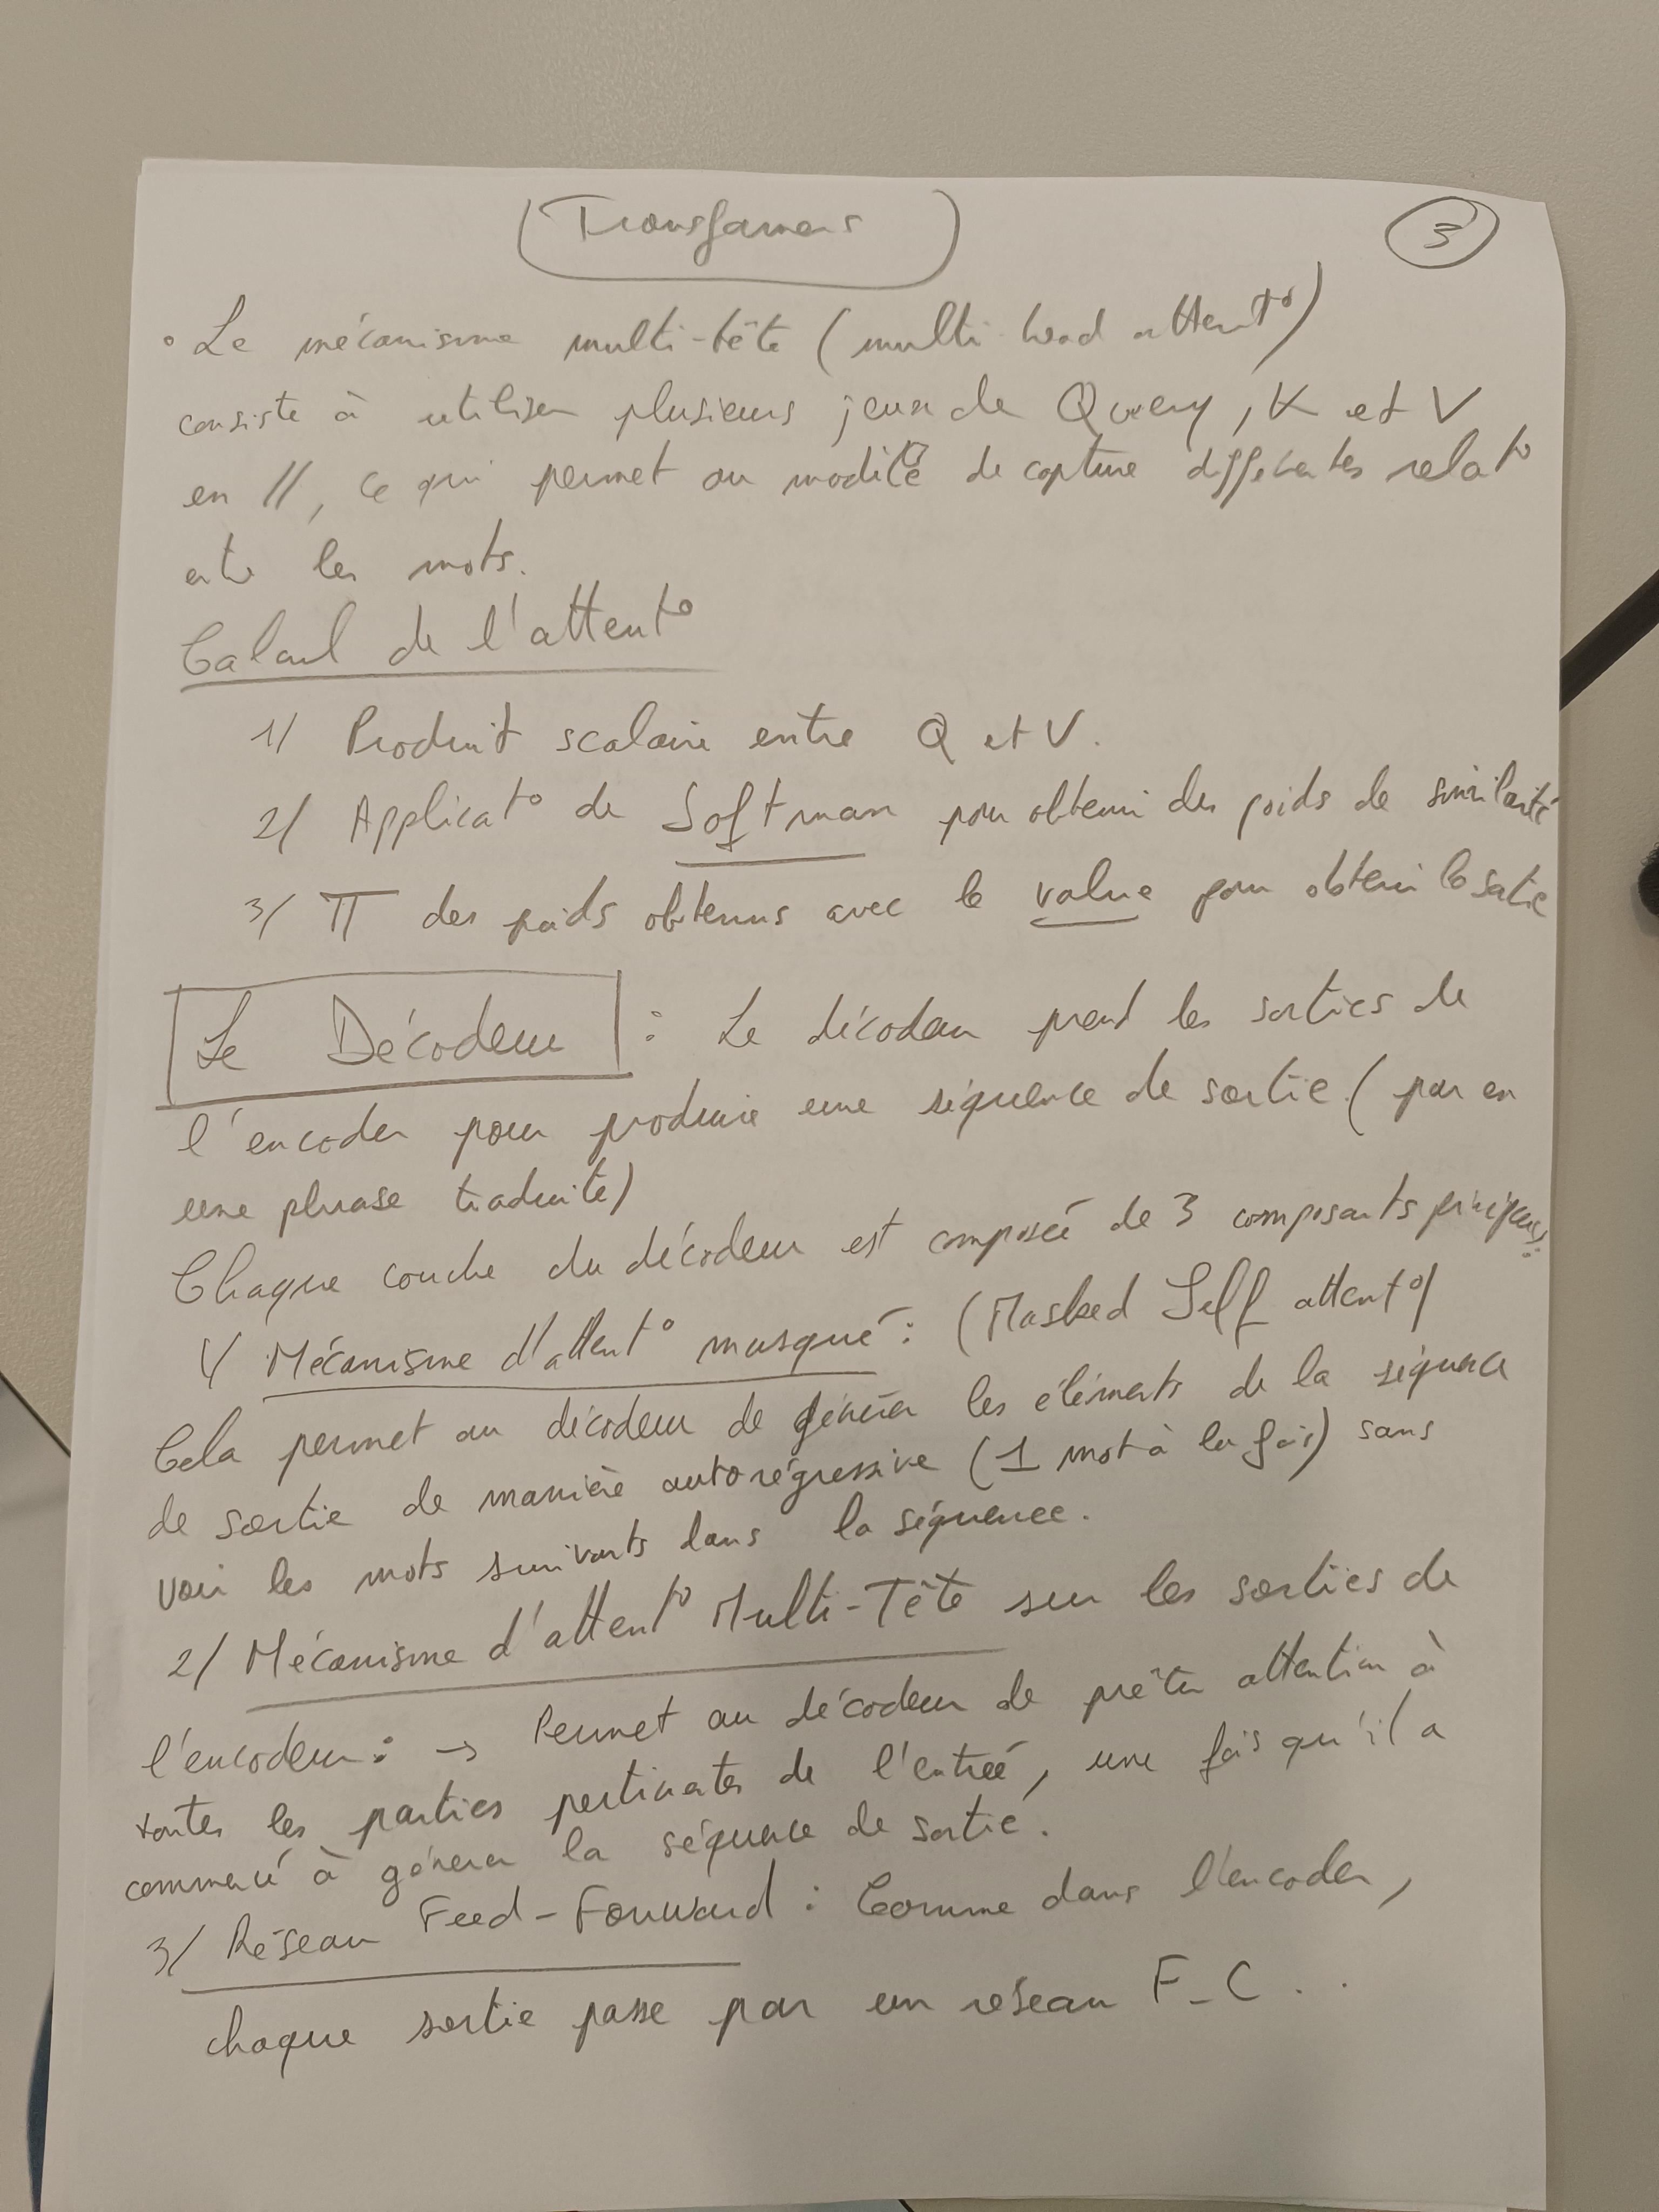 Transformers
3
• Le mécanisme multi-tête (multi-head attent°)
consiste à utiliser plusieurs jeux de Query, K et V
en //, ce qui permet au modèle de capturer différentes relat°
entre les mots.
Calcul de l'attent°
1/ Produit scalaire entre Q et V.
2/ Applicat° de Softmax pour obtenir des poids de similarité
3/ Π des poids obtenus avec le value pour obtenir la sortie
Le Décodeur : Le décodeur prend les sorties de
l'encoder pour produire une séquence de sortie (par ex
une phrase traduite)
Chaque couche du décodeur est composée de 3 composants principaux:
1/ Mécanisme d'attent° masqué : (Masked Self attent°)
Cela permet au décodeur de générer les éléments de la séquence
de sortie de manière autorégressive (1 mot à la fois) sans
voir les mots suivants dans la séquence.
2/ Mécanisme d'attent° Multi-Tête sur les sorties de
l'encodeur : → Permet au décodeur de prêter attention à
toutes les parties pertinentes de l'entrée, une fois qu'il a
commencé à générer la séquence de sortie.
3/ Réseau Feed-Forward : Comme dans l'encoder,
chaque sortie passe par un reseau F_C . .